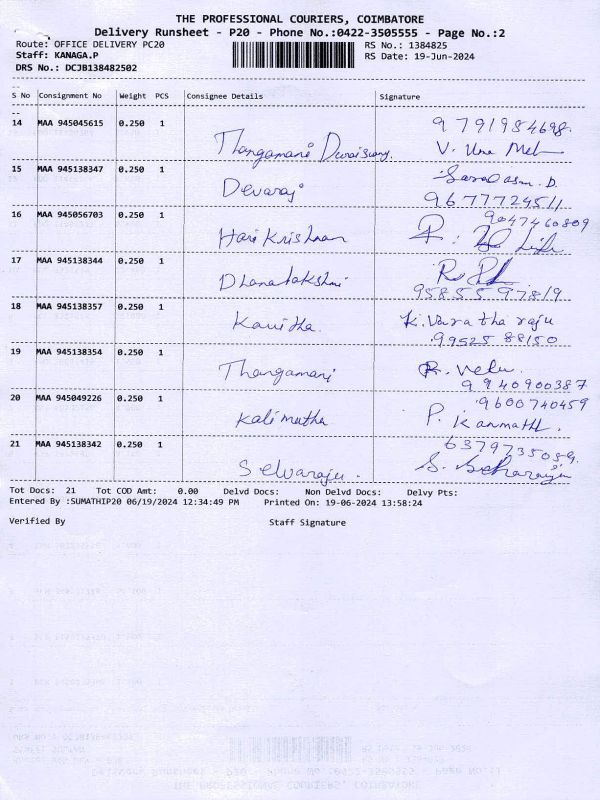 THE PROFESSIONAL COURIERS, COIMBATORE
Delivery Runsheet - P20 - Phone No.:0422-3505555 - Page No.:2
Route: OFFICE DELIVERY PC20 RS No.: 1384825
Staff: KANAGA.P RS Date: 19-Jun-2024
DRS No.: DCJB138482502
S No Consignment No Weight PCS Consignee Details Signature
14 MAA 945045615 0.250 1 9791954698
Thangamani V.
15 MAA 945138347 0.250 1 D.
Devaraj 9677724511
16 MAA 945056703 0.250 1 9047460809
Hari Krishnan
17 MAA 945138344 0.250 1
Dhanalakshmi 9585597819
18 MAA 945138357 0.250 1 K. Varatha raju
Kavitha. 99525 88150
19 MAA 945138354 0.250 1 R. Velu.
Thangamani 9940900387
20 MAA 945049226 0.250 1 9600740459
Kalimutha P.
21 MAA 945138342 0.250 1 6379735039.
Selvaraju. S.
Tot Docs: 21 Tot COD Amt: 0.00 Delvd Docs: Non Delvd Docs: Delvy Pts:
Entered By :SUMATHIP20 06/19/2024 12:34:49 PM Printed On: 19-06-2024 13:58:24
Verified By Staff Signature